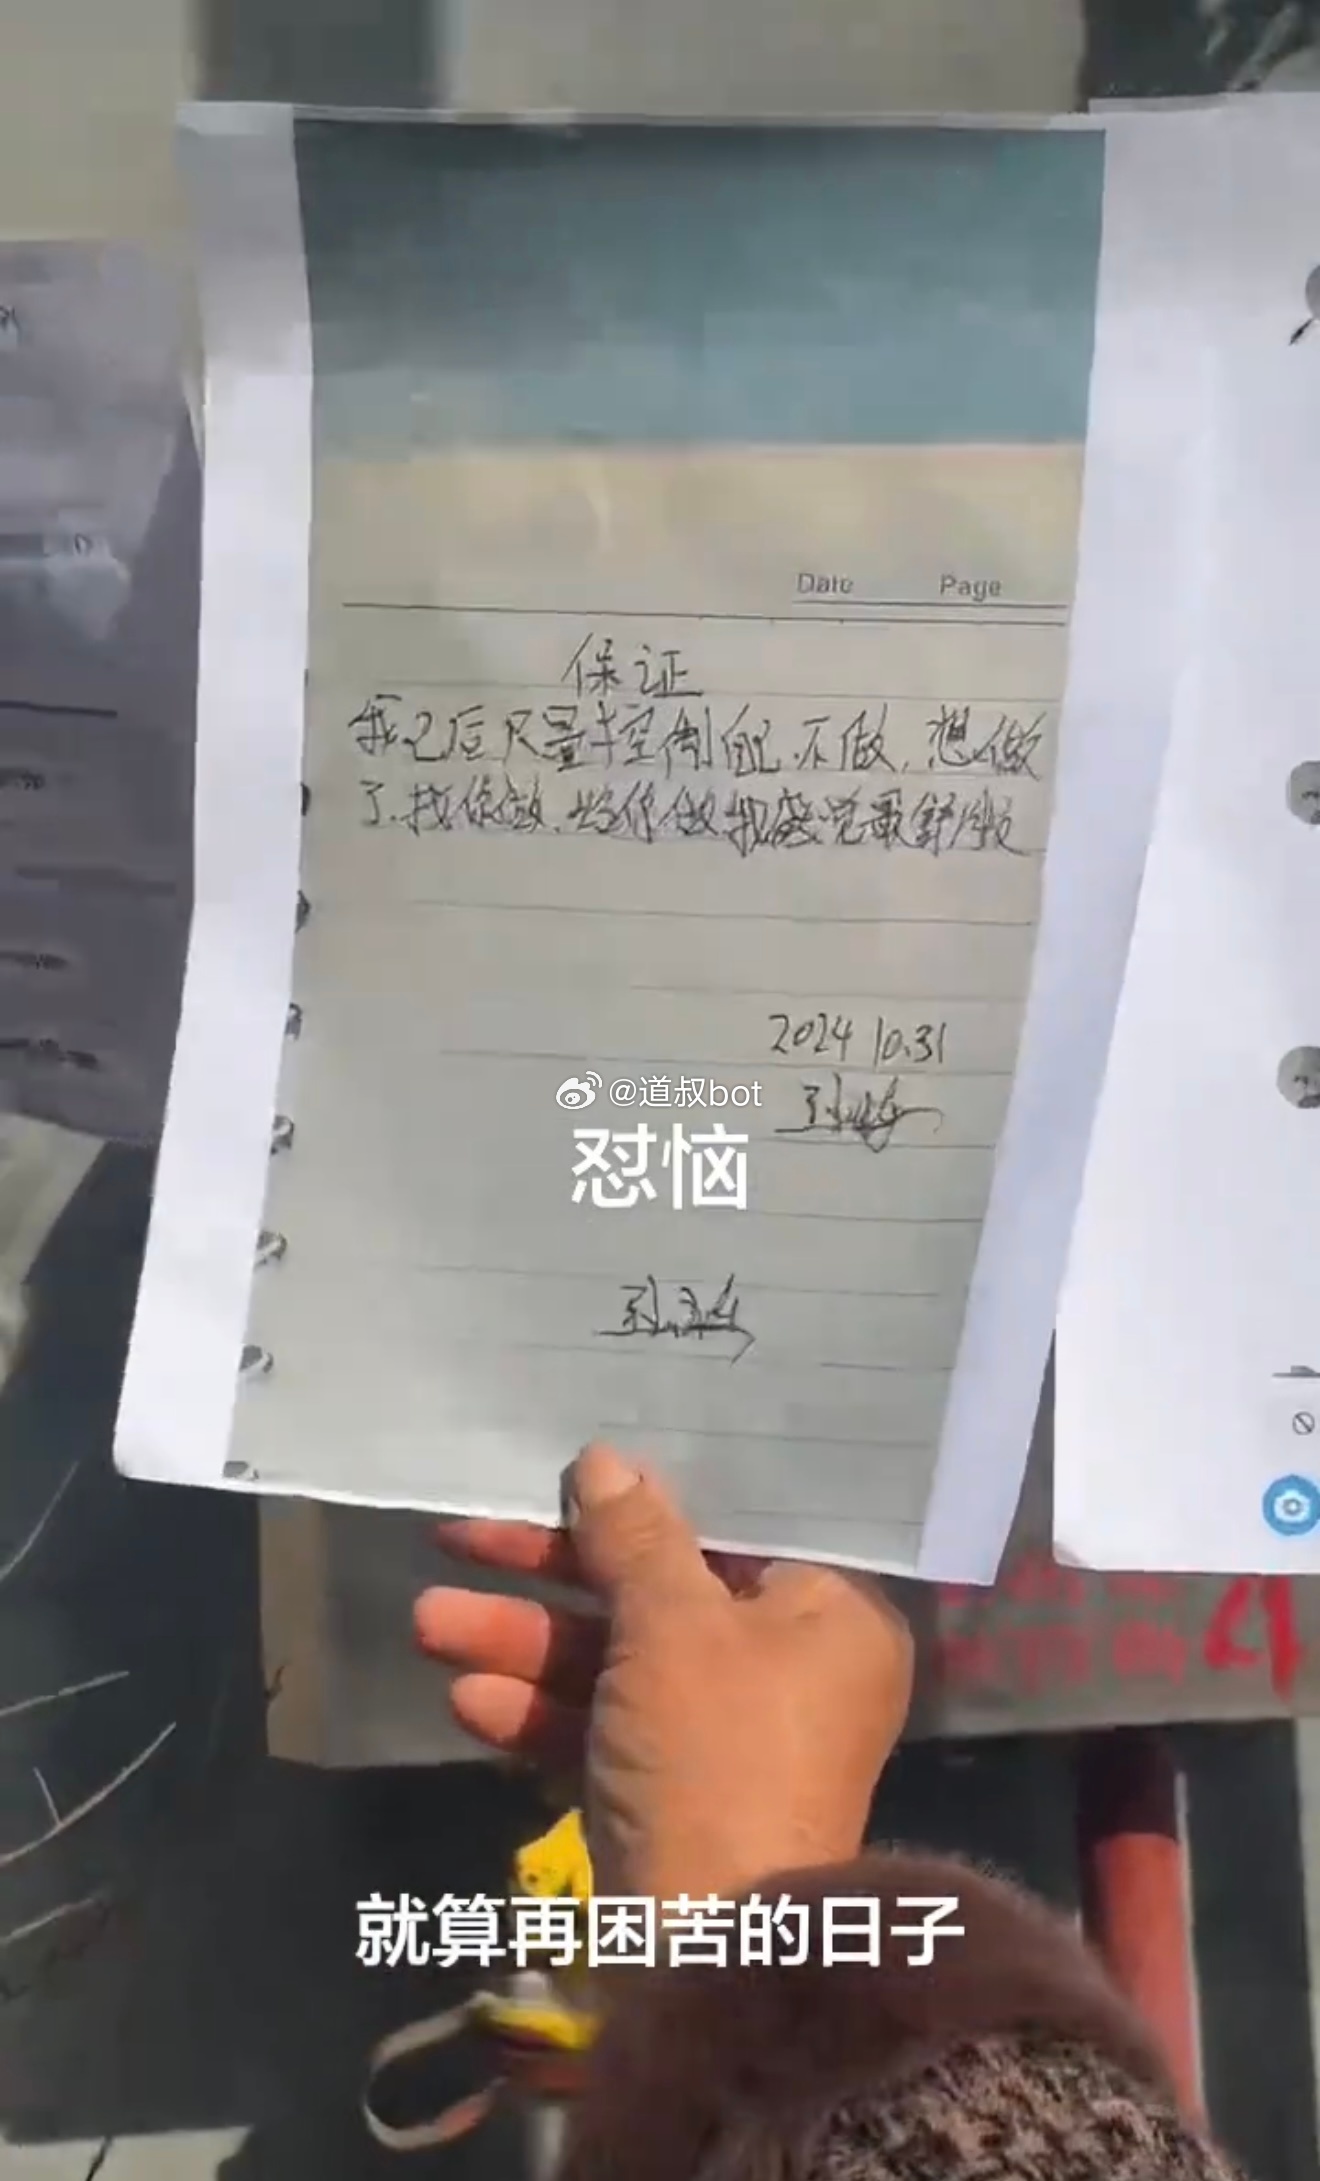 Date Page
保证
我已后尽量控制自己不做,想做
了.找你做,与你做我感觉最舒服
2024 10.31
@道叔bot
怼恼
就算再困苦的日子